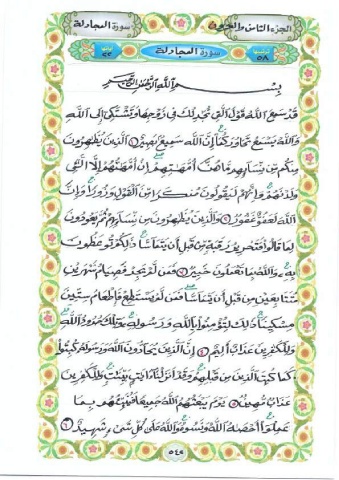 الجزء الثامن والعشرون سورة المجادلة
ترتيبها ٥٨ سورة المجادلة آياتها ٢٢
بِسْمِ ٱللَّهِ ٱلرَّحْمَٰنِ ٱلرَّحِيمِ
قَدْ سَمِعَ ٱللَّهُ قَوْلَ ٱلَّتِى تُجَٰدِلُكَ فِى زَوْجِهَا وَتَشْتَكِىٓ إِلَى ٱللَّهِ
وَٱللَّهُ يَسْمَعُ تَحَاوُرَكُمَآ إِنَّ ٱللَّهَ سَمِيعٌۢ بَصِيرٌ ١ ٱلَّذِينَ يُظَٰهِرُونَ
مِنكُم مِّن نِّسَآئِهِم مَّا هُنَّ أُمَّهَٰتِهِمْ إِنْ أُمَّهَٰتُهُمْ إِلَّا ٱلَّٰٓـِٔى
وَلَدْنَهُمْ وَإِنَّهُمْ لَيَقُولُونَ مُنكَرًا مِّنَ ٱلْقَوْلِ وَزُورًا وَإِنَّ
ٱللَّهَ لَعَفُوٌّ غَفُورٌ ٢ وَٱلَّذِينَ يُظَٰهِرُونَ مِن نِّسَآئِهِمْ ثُمَّ يَعُودُونَ
لِمَا قَالُوا۟ فَتَحْرِيرُ رَقَبَةٍ مِّن قَبْلِ أَن يَتَمَآسَّا ذَٰلِكُمْ تُوعَظُونَ
بِهِۦ وَٱللَّهُ بِمَا تَعْمَلُونَ خَبِيرٌ ٣ فَمَن لَّمْ يَجِدْ فَصِيَامُ شَهْرَيْنِ
مُتَتَابِعَيْنِ مِن قَبْلِ أَن يَتَمَآسَّا فَمَن لَّمْ يَسْتَطِعْ فَإِطْعَامُ سِتِّينَ
مِسْكِينًا ذَٰلِكَ لِتُؤْمِنُوا۟ بِٱللَّهِ وَرَسُولِهِۦ وَتِلْكَ حُدُودُ ٱللَّهِ
وَلِلْكَٰفِرِينَ عَذَابٌ أَلِيمٌ ٤ إِنَّ ٱلَّذِينَ يُحَآدُّونَ ٱللَّهَ وَرَسُولَهُۥ كُبِتُوا۟
كَمَا كُبِتَ ٱلَّذِينَ مِن قَبْلِهِمْ وَقَدْ أَنزَلْنَآ ءَايَٰتٍۭ بَيِّنَٰتٍ وَلِلْكَٰفِرِينَ
عَذَابٌ مُّهِينٌ ٥ يَوْمَ يَبْعَثُهُمُ ٱللَّهُ جَمِيعًا فَيُنَبِّئُهُم بِمَا
عَمِلُوٓا۟ أَحْصَىٰهُ ٱللَّهُ وَنَسُوهُ وَٱللَّهُ عَلَىٰ كُلِّ شَىْءٍ شَهِيدٌ ٦
٥٤٢